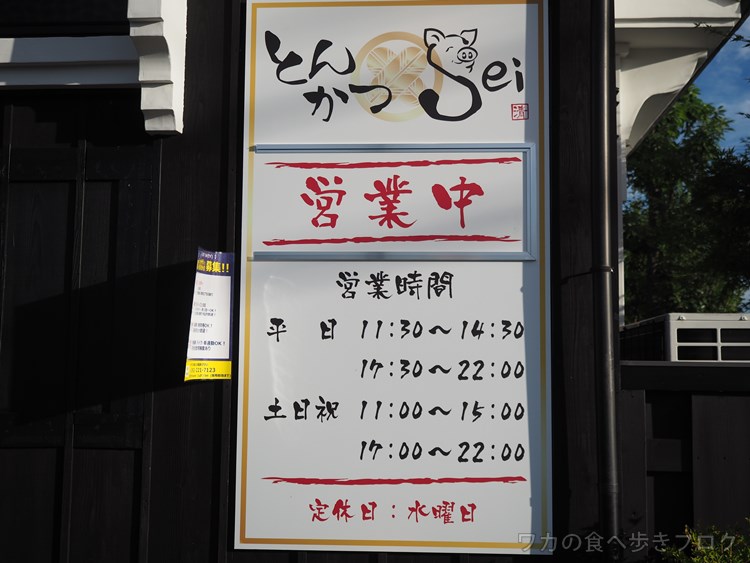 とんかつ Sei
営業中
営業時間
平日 11:30～14:30
17:30～22:00
土日祝 11:00～15:00
17:00～22:00
定休日：水曜日
募集!!
ワカの食べ歩きブログ